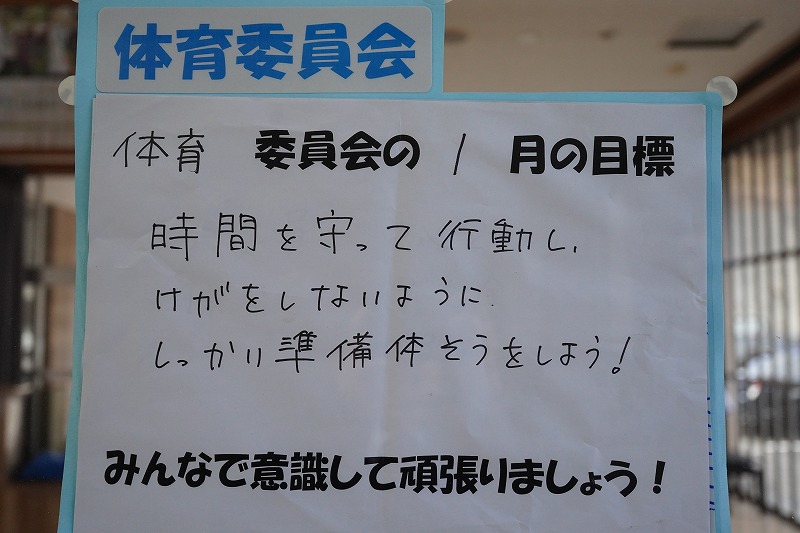 体育委員会
体育 委員会の 1 月の目標
時間を守って行動し、
けがをしないように
しっかり準備体そうをしよう!
みんなで意識して頑張りましょう!